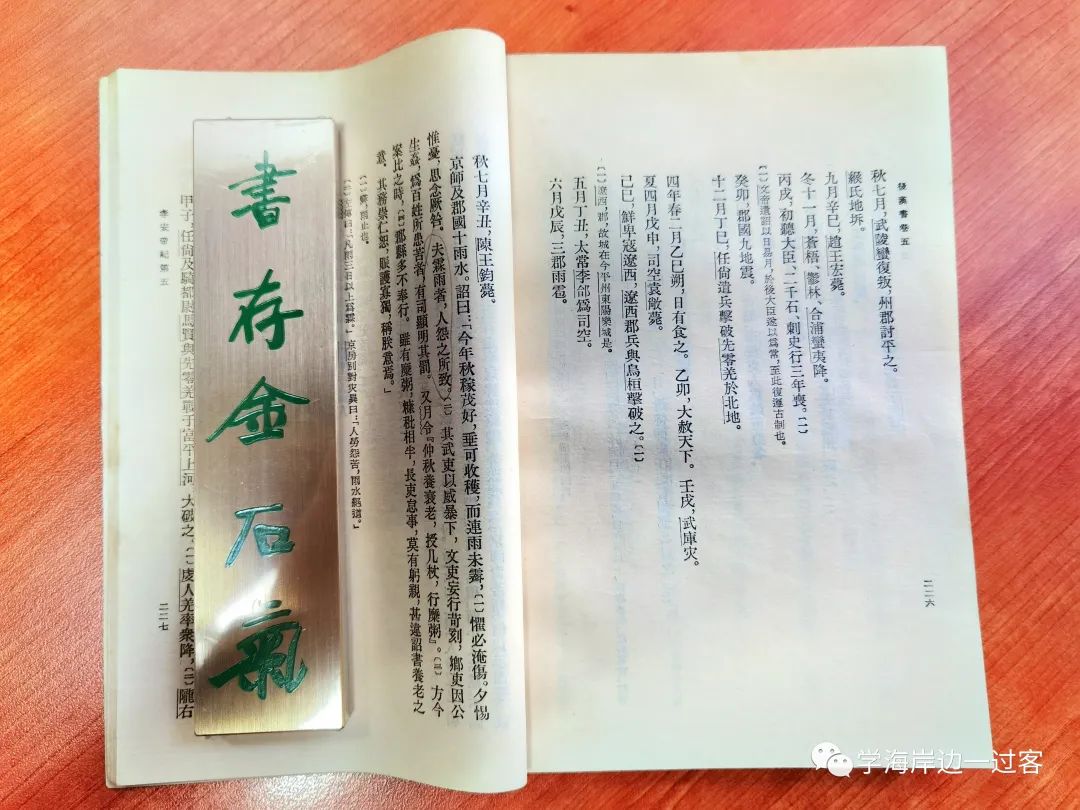 後漢書卷五
二二六
秋七月，武陵蠻復叛，州郡討平之。
緱氏地坼。
九月辛巳，趙王宏薨。
冬十一月，蒼梧、鬱林、合浦蠻夷降。
丙戌，初聽大臣、二千石、刺史行三年喪。〔一〕
〔一〕文帝遺詔以日易月，於後大臣遂以爲常，至此復遵古制也。
癸卯，郡國九地震。
十二月丁巳，任尚遣兵擊破先零羌於北地。
四年春二月乙巳朔，日有食之。乙卯，大赦天下。壬戌，武庫灾。
夏四月戊申，司空袁敞薨。
己巳，鮮卑寇遼西，遼西郡兵與烏桓擊破之。〔一〕
〔一〕遼西，郡，故城在今平州東陽樂城是。
五月丁丑，太常李郃爲司空。
六月戊辰，三郡雨雹。
秋七月辛丑，陳王鈞薨。
京師及郡國十雨水。詔曰：「今年秋稼茂好，垂可收穫，而連雨未霽，〔一〕懼必淹傷。夕惕
惟憂，思念厥咎。夫霖雨者，人怨之所致。〔二〕其武吏以威暴下，文吏妄行苛刻，鄉吏因公
生姦，爲百姓所患苦者，有司顯明其罰。又月令『仲秋養衰老，授几杖，行糜粥』。〔三〕方今
案比之時，〔四〕郡縣多不奉行。雖有糜粥，糠秕相半，長吏怠事，莫有躬親，甚違詔書養老之
意。其務崇仁恕，賑護寡獨，稱朕意焉。」
〔一〕霽，雨止也。
〔二〕左傳曰：「凡雨三日以上爲霖。」京房別對灾異曰：「人勞怨苦，雨水絕道。」
書存金石氣
甲子，任尚及騎都尉馬賢與先零羌戰于富平上河，大破之。〔一〕虔人羌率衆降，〔二〕隴右
孝安帝紀第五
二二七
学海岸边一过客